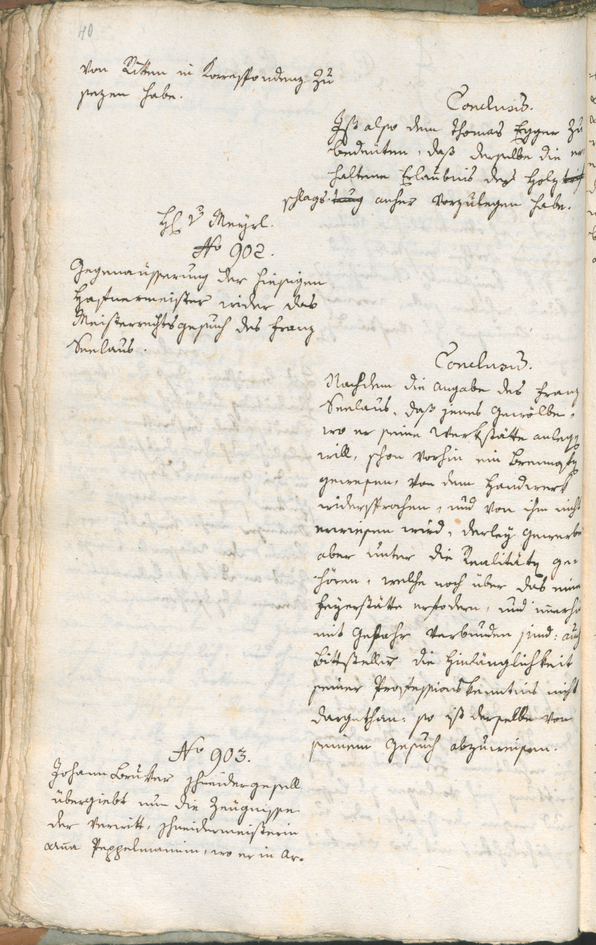 40
von Ritten in Korrespondenz zu
sezen habe.
Conclusis.
Ist also dem Thomas Egger zu
bedeuten, daß derselbe die er
haltene Erlaubnis des Holz
schlags anher vorzulegen habe.
H. v Meyrl.
No 902.
Gegenäusserung der hiesigen
Hafnermeister wider das
Meisterrechtsgesuch des Franz
Seelaus.
Conclusis.
Nachdem die angabe des Franz
Seelaus, daß jenes Gewölbe,
wo er seine Werkstätte anlegen
will, schon vorhin ein
gewesen, von dem Handwerk
widersprochen, und von ihm nicht
erwiesen wird, derley Gewerbe
aber unter die Realitäten ge-
hören, welche noch über das eine
Feyerstätte erfodern, und
mit Gefahr verbunden sind: auch
Bittsteller die Hinlänglichkeit
seiner Professionskenntnis nicht
dargethan: so ist derselbe von
seinem Gesuch abzuweisen.
No 903.
Johann Bruker schneidergesell
übergiebt nun die Zeugnisse
der verwitt. schneidermeisterin
Anna Peppelmannin, wo er in Ar-